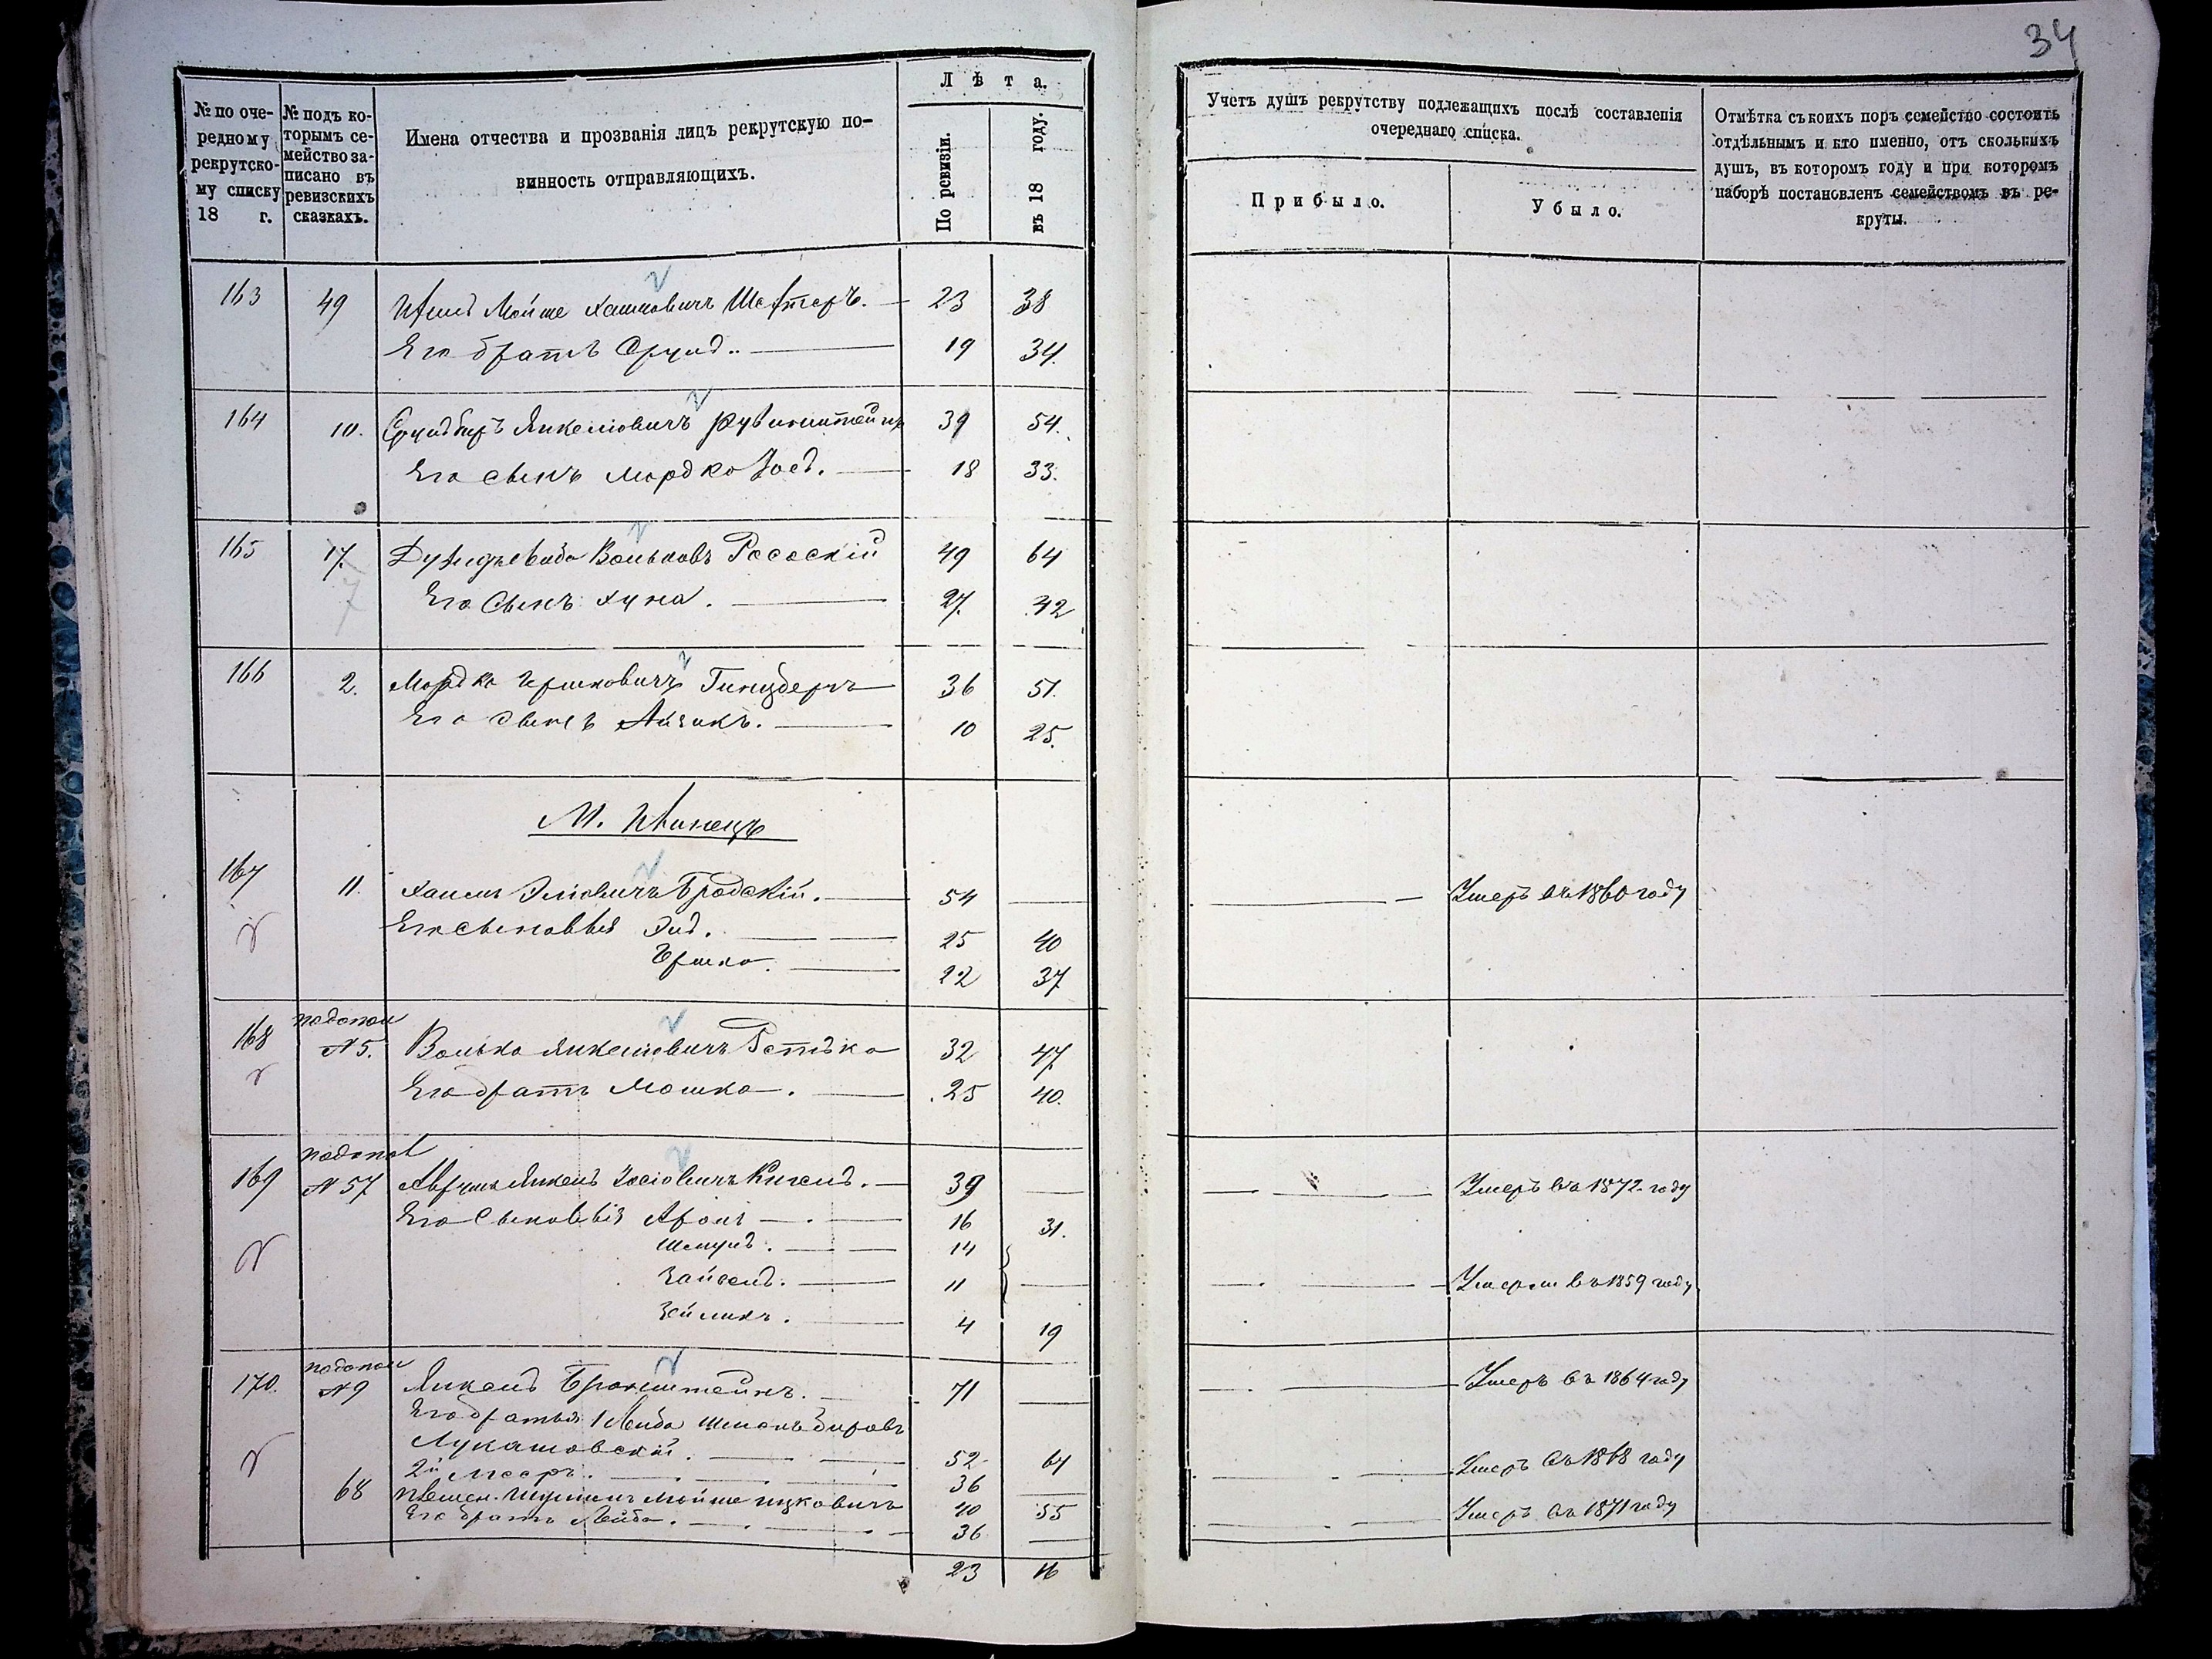 34
№ по оче-
редному
рекрутско-
му списку
18 г.
№ подъ ко-
торымъ се-
мейство за-
писано въ
ревизскихъ
сказкахъ.
Имена отчества и прозванія лицъ рекрутскую по-
винность отправляющихъ.
Лѣта.
По ревизіи.
въ 18 году.
Учетъ душъ рекрутству подлежащихъ послѣ составленія
очереднаго списка.
Прибыло.
Убыло.
Отмѣтка съ коихъ поръ семейство состоитъ
отдѣльнымъ и кто именно, отъ сколькихъ
душъ, въ которомъ году и при которомъ
наборѣ постановленъ семействомъ въ ре-
круты.
163 49 Мойше Хаимовичъ 23 38
Его братъ Сруль 19 34.
164 10. Янкелювичъ Рубинштейнъ 39 54.
Его сынъ Мордко 18 33.
165 17. Вольковъ Рософскій 49 64
7
Его сынъ Хуна. 27. 42
166 2. Мордко Гершковичъ Гинцберъ 36 51.
Его сынъ Айзикъ. 10 25.
М. Ивенецъ
167 11. Хаимъ Эліовичъ Бродскій. 54 Умеръ въ 1860 году
Его сыновья Эль. 25 40
Гершко. 22 37
168 №5. Волько Янкелювичъ 32 47
Его братъ Мошко. 25 40.
169 №57 Янкель Іосіовичъ 39 Умеръ въ 1872 году
Его сыновья Аронъ 16 31.
Шмуль. 14
11 Умерли въ 1859 году
Зеликъ. 4 19
170. №9 Янкель Бронштейнъ. 71 Умеръ въ 1864 году
Его братья 1 Лейба
Лукашовскій. 52 67
2й Мееръ. 36 Умеръ въ 1868 году
68 Племен. Мойше Ицковичъ 40 55
Его братъ Лейба. 36 Умеръ въ 1871 году
23 16